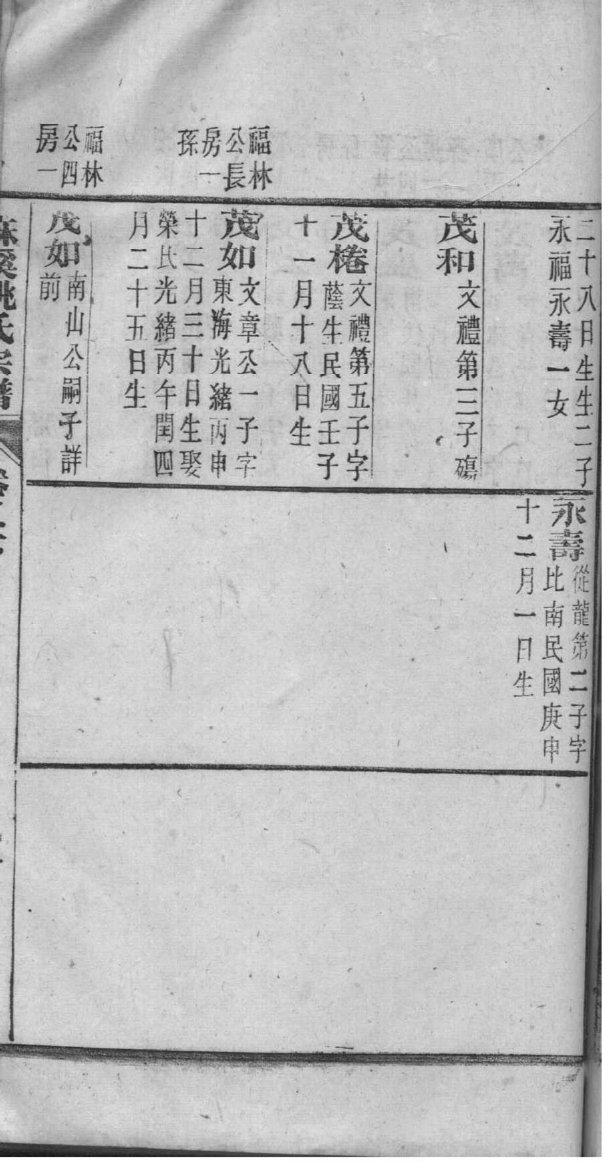 福林
公長
房一
孫
福林
公四
房一
二十八日生生二子
永福永壽一女
茂和文禮第三子殤
茂棬文禮第五子字
蔭生民國壬子
十一月十八日生
茂如文章公一子字
東海光緒丙申
十二月三十日生娶
榮氏光緒丙午閏四
月二十五日生
茂如南山公嗣子詳
前
永壽從龍第二子字
比南民國庚申
十二月一日生
姚氏宗譜